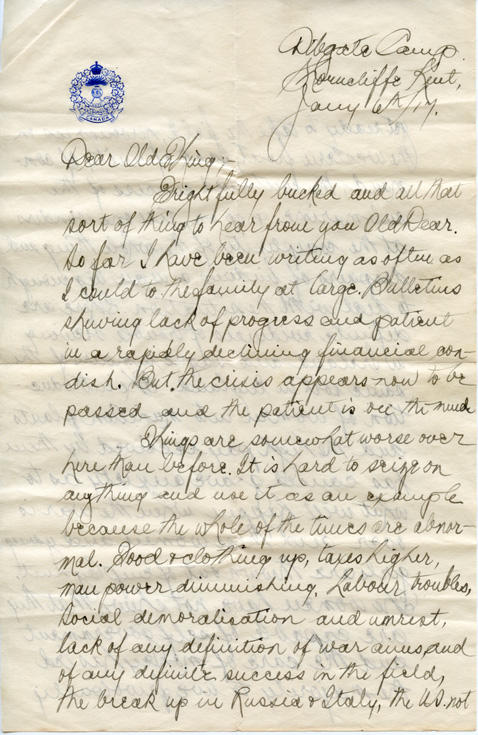 CANADA
Dibgate Camp.
Shorncliffe Kent,
Jany 6th/17.
Dear Old Thing;-
Frightfully bucked and all that
sort of thing to hear from you Old Dear.
So far I have been writing as often as
I could to the family at large. Bulletins
showing lack of progress and patient
in a rapidly declining financial con-
dish. But the crisis appears now to be
passed and the patient is on the mend
Things are somewhat worse over
here than before. It is hard to seize on
anything and use it as an example
because the whole of the times are abnor-
mal. Food & clothing up, taxes higher,
man power diminishing, Labour troubles,
Social demoralisation and unrest,
lack of any definition of war aims, and
of any definite success in the field,
the break up in Russia & Italy, the U.S. not